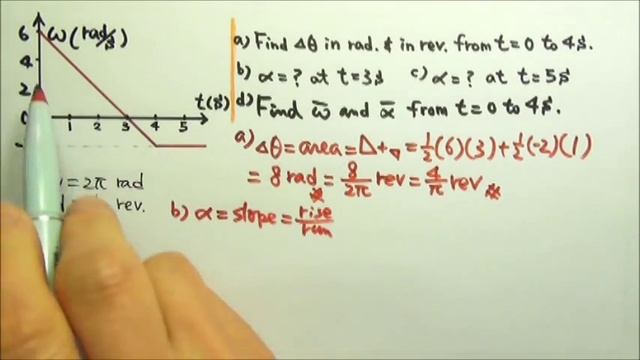 6
ω (rad/s)
4
2
0
1 2 3 4 5
t(s)
= 2π rad
rev.
a) Find Δθ in rad. & in rev. from t=0 to 4s.
b) α=? at t=3s c) α=? at t=5s
d) Find ω̅ and α̅ from t=0 to 4s.
a) Δθ = area = Δ + ▽ = ½(6)(3) + ½(-2)(1)
= 8 rad = 8/2π rev = 4/π rev
b) α = slope = rise/run